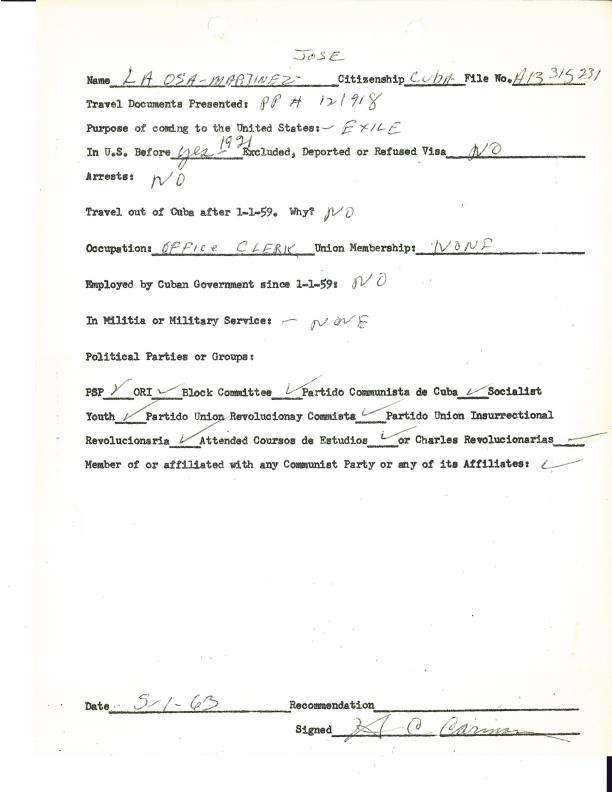 JOSE
Name LA OSA-MARTINEZ Citizenship CUBA File No. A13 315231
Travel Documents Presented: PP # 121918
Purpose of coming to the United States:- EXILE
In U.S. Before yes - 1921 Excluded, Deported or Refused Visa NO
Arrests: NO
Travel out of Cuba after 1-1-59. Why? NO
Occupation: OFFICE CLERK Union Membership: NONE
Employed by Cuban Government since 1-1-59: NO
In Militia or Military Service: - NONE
Political Parties or Groups:
PSP ✓ ORI ✓ Block Committee ✓ Partido Communista de Cuba ✓ Socialist
Youth ✓ Partido Union Revolucionay Commista ✓ Partido Union Insurrectional
Revolucionaria ✓ Attended Coursos de Estudios ✓ or Charles Revolucionarias ✓
Member of or affiliated with any Communist Party or any of its Affiliates: ✓
Date 5-1-63 Recommendation
Signed H C Carman